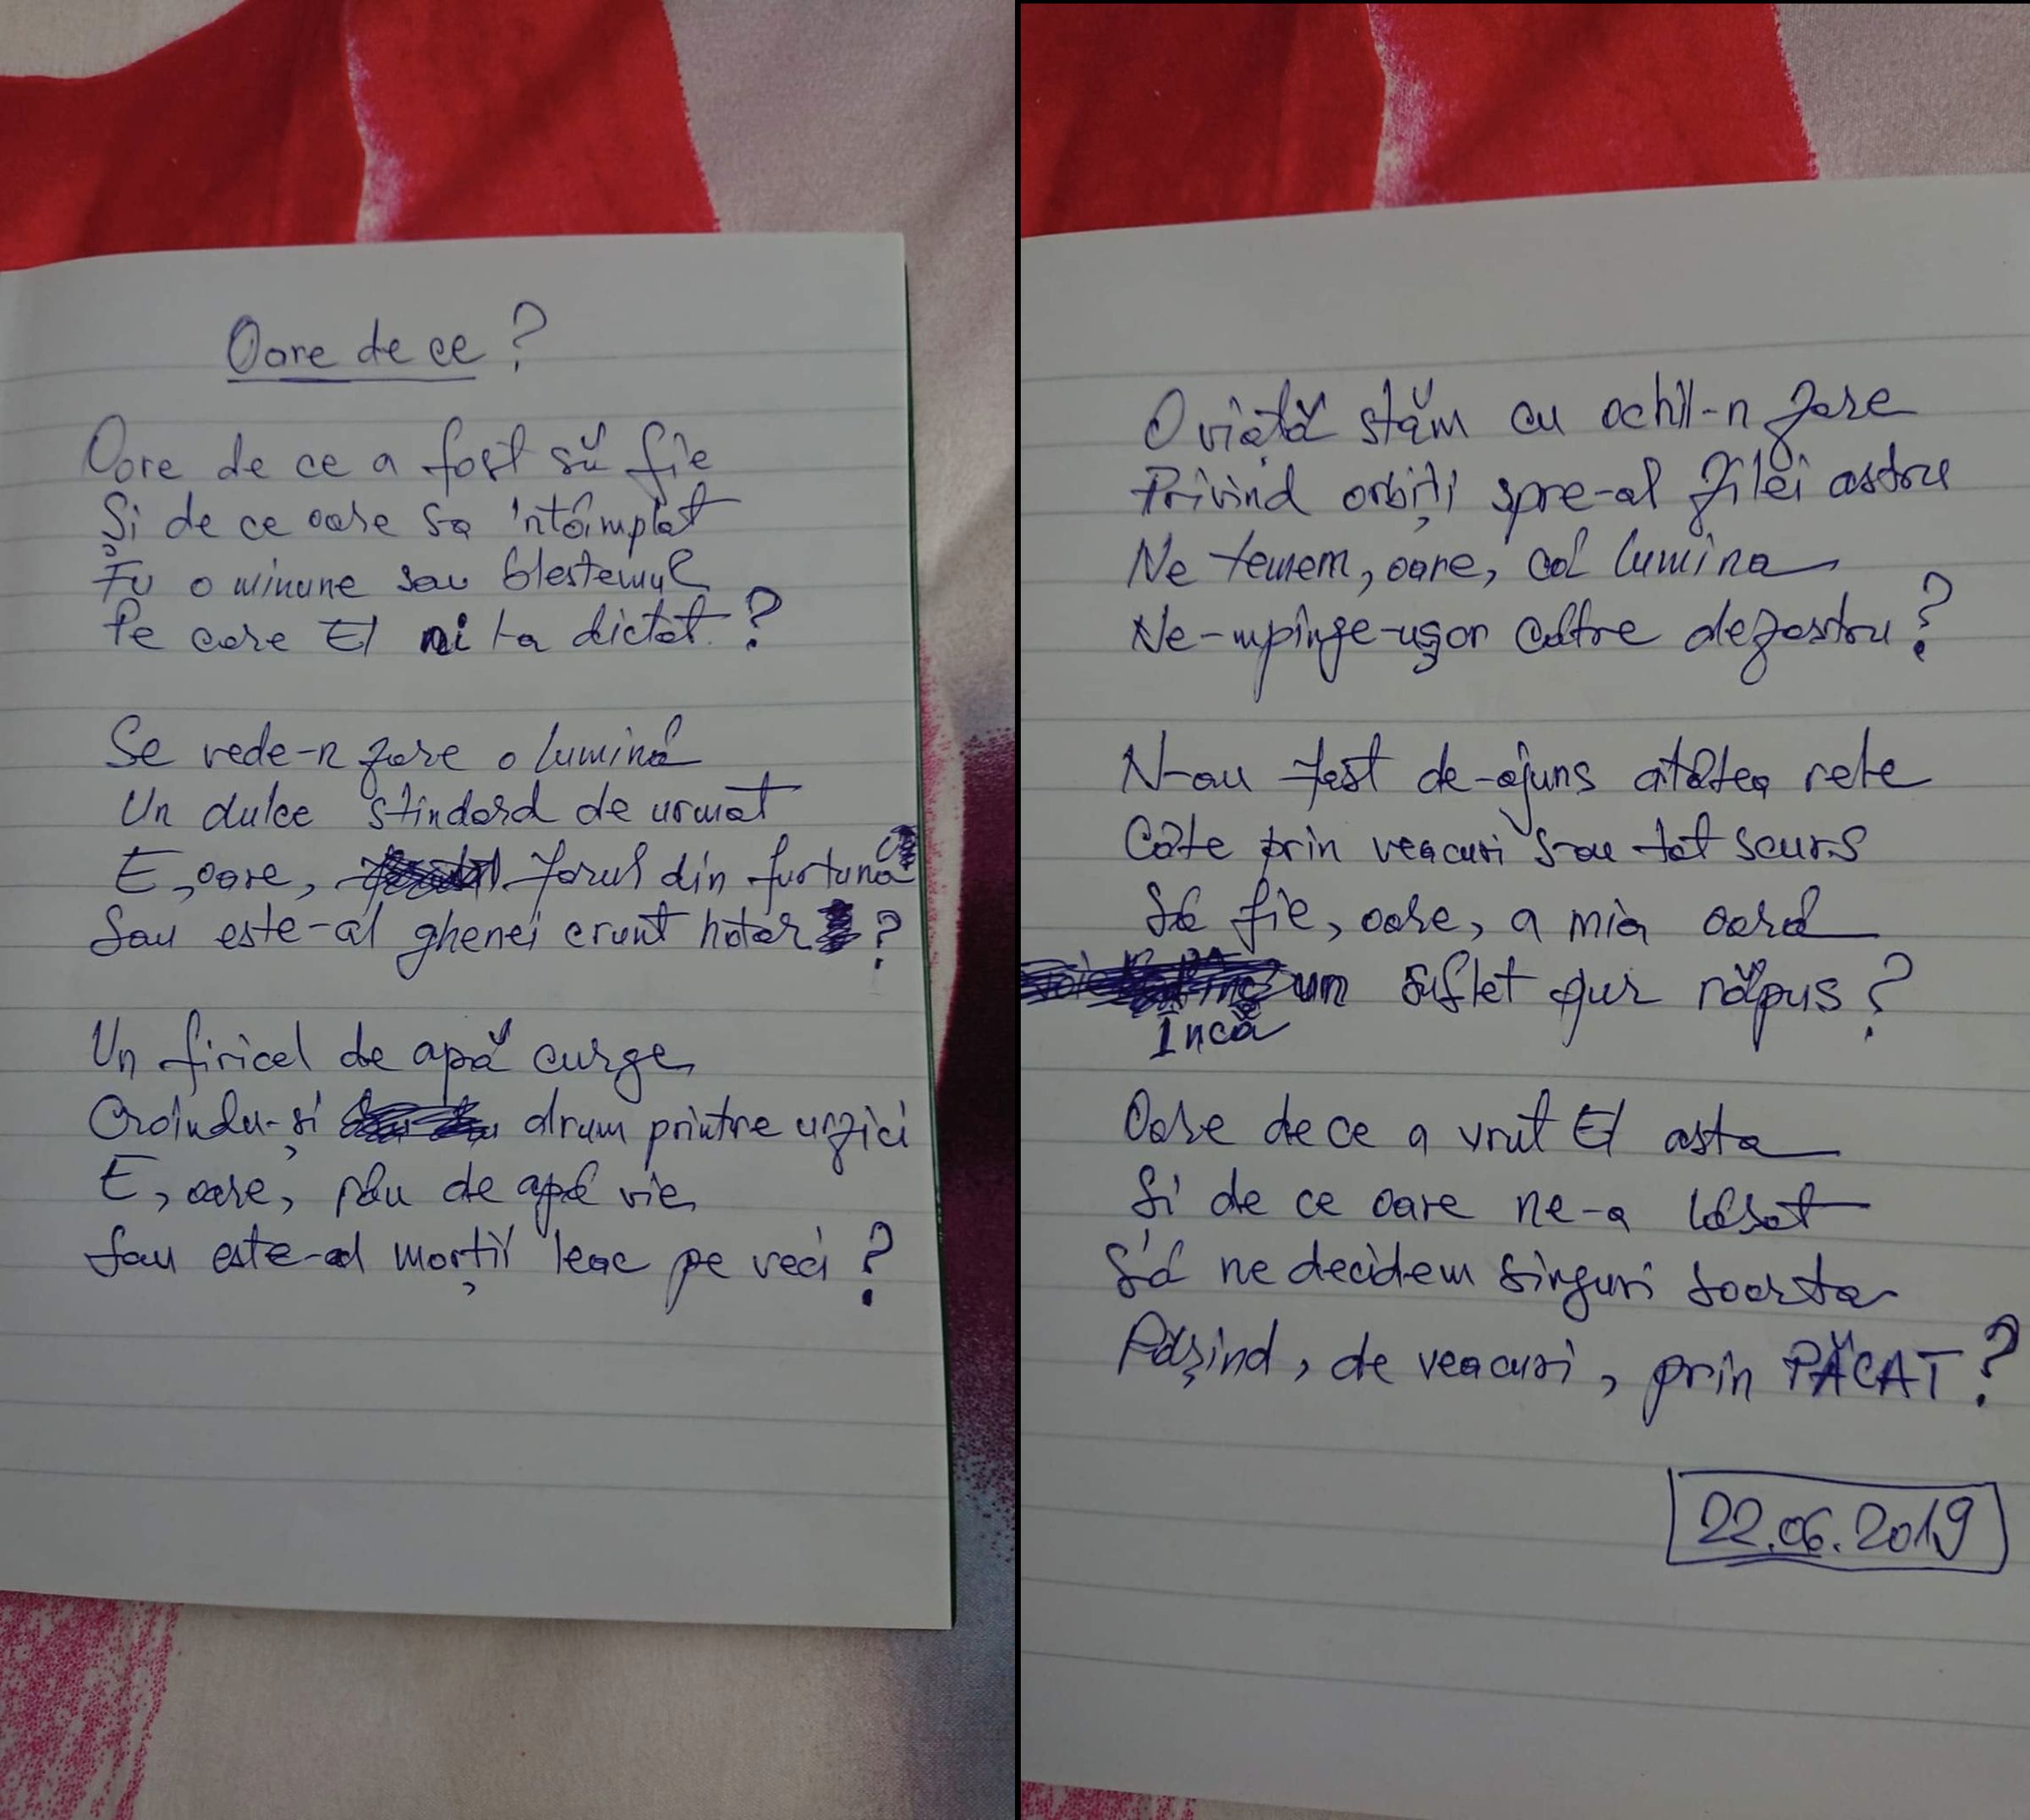 Oare de ce?
Oare de ce a fost să fie
Și de ce oare sa 'ntâmplat
Fu o minune sau blestemul
Pe care El ni l-a dictat?
Se vede-n zare o lumină
Un dulce stindard de urmat
E, oare, farul din furtună
Sau este-al ghenei crunt hotar?
Un firicel de apă curge
Croindu-și drum printre urzici
E, oare, râu de apă vie
Sau este-al morții leac pe veci?
O viață stăm cu ochii-n zare
Privind orbiți spre-al zilei astru
Ne temem, oare, cal lumina
Ne-mpinge-ușor către dezastru?
N-au fost de-ajuns atâtea rele
Câte prin veacuri s-au tot scurs
Să fie, oare, a mia oară
un suflet pur răpus?
Încă
Oare de ce a vrut El asta
Și de ce oare ne-a lăsat
Să ne decidem singuri soarta
Pășind, de veacuri, prin PĂCAT?
22.06.2019